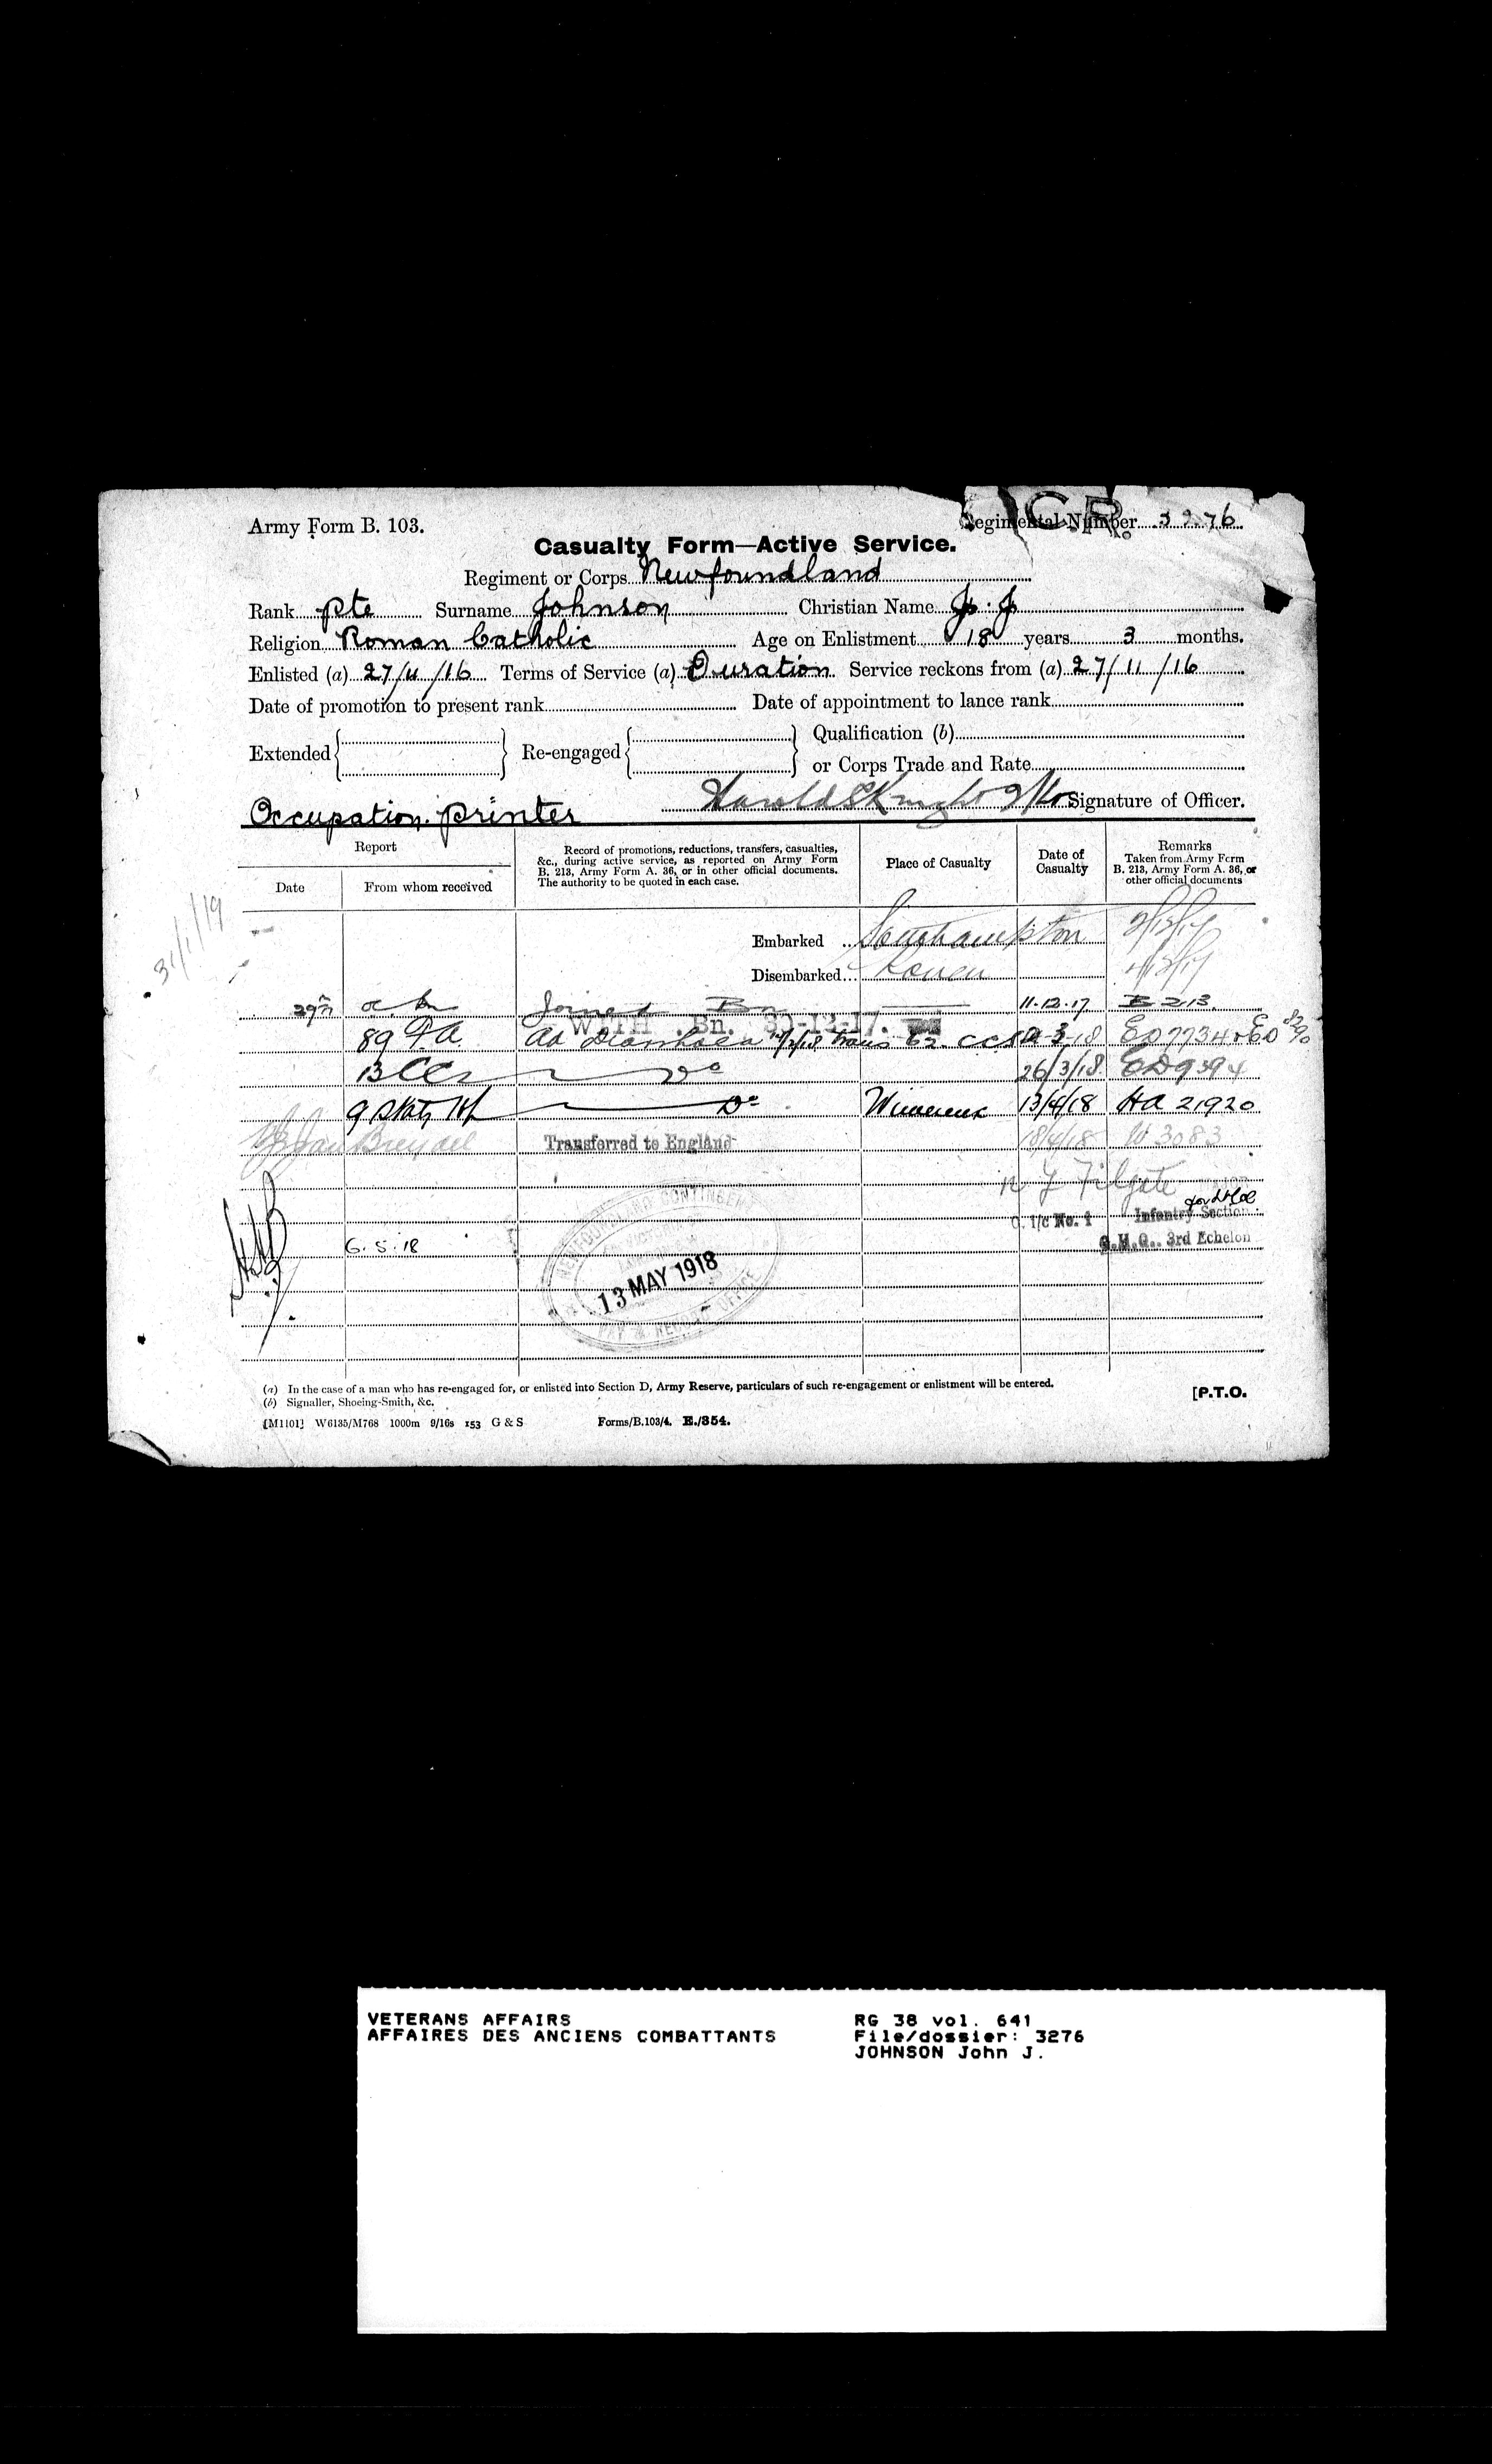 Army Form B. 103.
Regimental Number 3276
Casualty Form—Active Service.
Regiment or Corps Newfoundland
Rank Pte Surname Johnson Christian Name J. J
Religion Roman Catholic Age on Enlistment 18 years 3 months.
Enlisted (a) 27/11/16 Terms of Service (a) Duration Service reckons from (a) 27/11/16
Date of promotion to present rank Date of appointment to lance rank
Extended Re-engaged Qualification (b)
or Corps Trade and Rate
Occupation. printer Signature of Officer.
Report
Date From whom received
Record of promotions, reductions, transfers, casualties, &c., during active service, as reported on Army Form B. 213, Army Form A. 36, or in other official documents. The authority to be quoted in each case.
Place of Casualty
Date of Casualty
Remarks
Taken from Army Form B. 213, Army Form A. 36, or other official documents
31/1/19
Embarked .. Southampton
Disembarked... Rouen
Joined Bn 11.12.17 B 213.
WITH Bn. 12-17.
89 FA ad Diarrhoea trans 62 CCS
26/3/18 ED9394
9 Staty Hp Do Wimereux 13/4/18 HA 21920
Transferred to England 18/4/18 W 3083
Filgate
O. i/c No. 1 Infantry Section
6.5.18 G.H.Q.. 3rd Echelon
NEWFOUNDLAND CONTINGENT
13 MAY 1918
PAY & RECORD OFFICE
(a) In the case of a man who has re-engaged for, or enlisted into Section D, Army Reserve, particulars of such re-engagement or enlistment will be entered.
(b) Signaller, Shoeing-Smith, &c.
[P.T.O.
[M1101] W6135/M768 1000m 9/16s 153 G & S Forms/B.103/4. E./354.
VETERANS AFFAIRS RG 38 vol. 641
AFFAIRES DES ANCIENS COMBATTANTS File/dossier: 3276
JOHNSON John J.